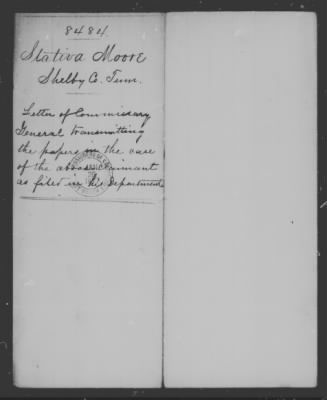 8484
Stativa Moore
Shelby Co. Tenn.
Letter of Commissary
General transmitting
the papers in the case
of the above claimant
as filed in his Department